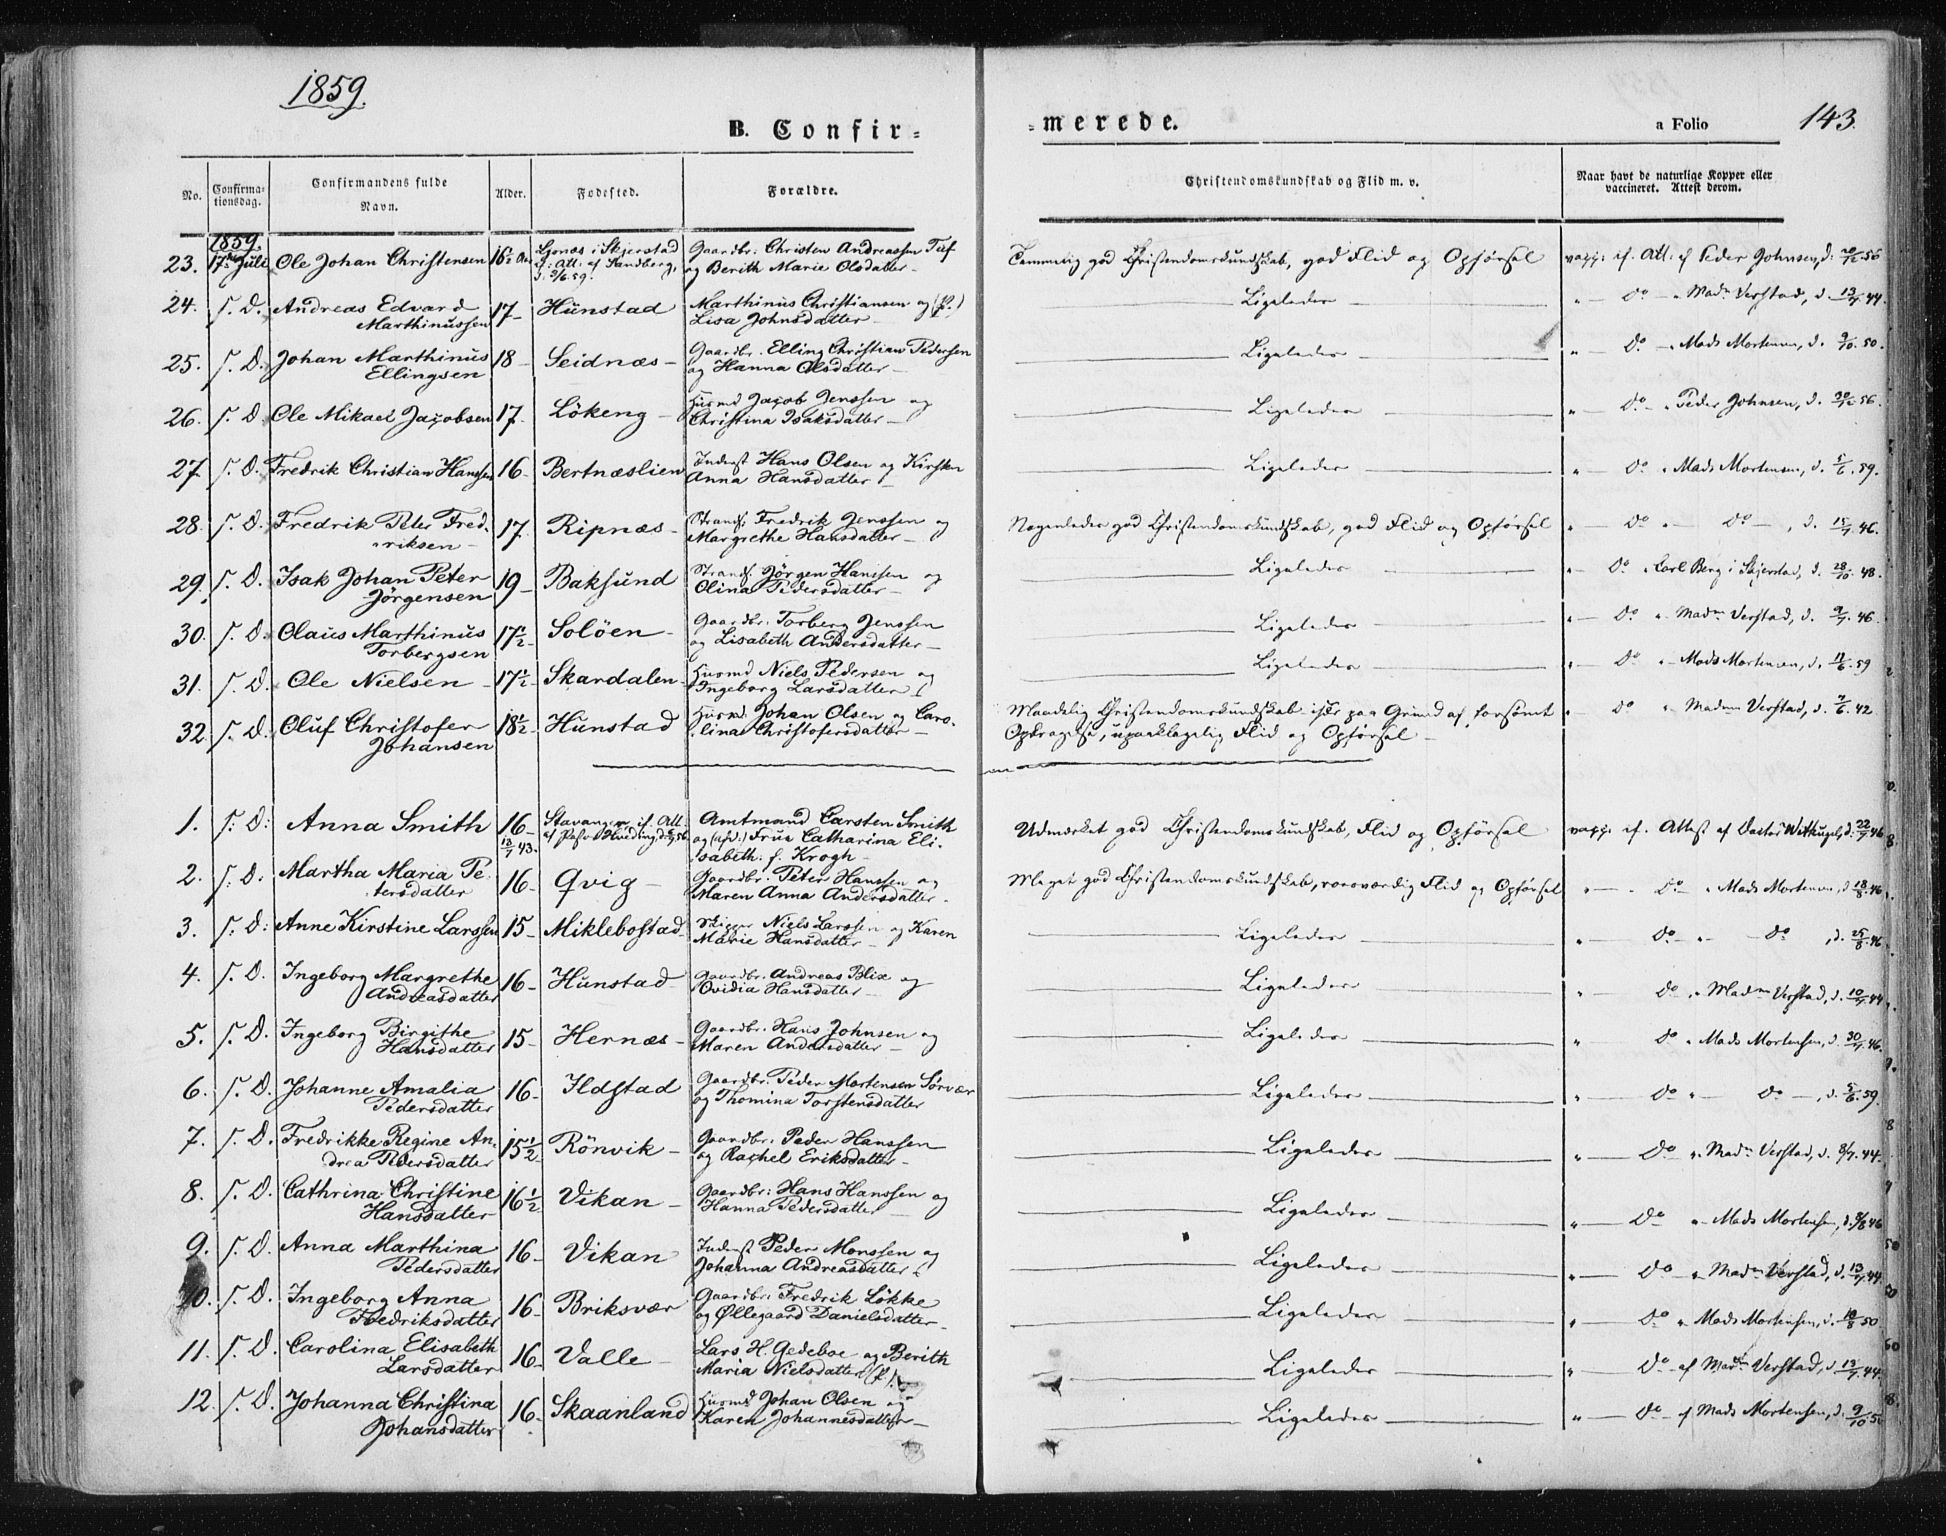 1859.
B. Confir=
=merede.
a Folio
143.
No.
Confirma-
tionsdag.
Confirmandens fulde
Navn.
Alder.
Fødested.
Forældre.
Christendomskundskab og Flid m. v.
Naar havt de naturlige Kopper eller
vaccineret. Attest derom.
1859.
23. 17de Juli Ole Johan Christensen 16½ Gaardbr. Christen Andreassen
i Skjerstad
Att. af Sandberg,
d. 2/6.59.
og Berith Marie Olsdatter
Temmelig god Christendomskundskab, god Flid og Opførsel
vacc. if. Att. af Peder Johnsen, d. 56
24. s. D. Andreas Edvard
Marthinussen 17 Hunstad Marthinus Christiansen og
Lisa Johnsdatter
Ligeledes
" Do " Madm Verstad, d. 13/7 44.
25. s. D. Johan Marthinus
Ellingsen 18 Seidnæs Gaardbr. Elling Christian Pedersen
og Hanna Olsdatter
Ligeledes
" Do " Mads Mortensen, d. 9/10. 50.
26. s. D. Ole Mikael Jacobsen 17 Lökeng Husmd Jacob Jenssen og
Christina Isaksdatter
Ligeledes
" Do " Peder Johnsen, d. 56.
27. s. D. Fredrik Christian Hanssen 16 Bertnæslien Inderst Hans Olsen og Kirsten
Anna Hansdatter
Ligeledes
" Do " Mads Mortensen, d. 5/6. 59.
28. s. D. Fredrik Peter Fred-
riksen 17 Ripnæs Strands. Fredrik Jenssen og
Margrethe Hansdatter
Nogenledes god Christendomskundskab, god Flid og Opførsel
" Do " Do, d. 15/7. 46.
29. s. D. Isak Johan Peter
Jörgensen 19 Baksund Strands. Jörgen Hanssen og
Olina Pedersdatter
Ligeledes
" Do " Carl Berg i Skjerstad, d. 28/10. 48.
30. s. D. Claus Marthinus
Torbergsen 17½ Solöen Gaardbr. Torberg Jenssen
og Lisabeth Andersdatter
Ligeledes
" Do " Madm Verstad, d. 9/7. 46.
31. s. D. Ole Nielsen 17½ Skardalen Husmd Niels Pedersen og
Ingeborg Larsdatter
Ligeledes
" Do " Mads Mortensen, d. 11/6. 59
32. s. D. Oluf Christofer
Johansen 18½ Hunstad Husmd. Johan Olsen og Caro-
lina Christofersdatter
Maadelig Christendomskundskab især paa Grund af forsømt
Opdragelse, upaaklagelig Flid og Opførsel
" Do " Madm Verstad, d. 7/6. 42
1. s. D. Anna Smith 16
12/7 43. Stavanger, if. Att.
af Amtmand Carsten Smith
og Frue Catharina Eli-
sabeth f. Krogh
Udmærket god Christendomskundskab, Flid og Opførsel
vacc. if. Attest af d. 22/7 46
2. s. D. Martha Maria Pe-
tersdatter 16 Qvig Gaardbr. Peter Hanssen og
Maren Anna Andersdatter
Meget god Christendomskundskab, rosværdig Flid og Opførsel
" Do " Mads Mortensen, d. 18/8. 46
3. s. D. Anne Kirstine Larssen 15 Miklebostad Skipper Niels Larssen og Karen
Marie Hansdatter
Ligeledes
" Do " Do, d. 25/8. 46.
4. s. D. Ingeborg Margrethe
Andreasdatter 16 Hunstad Gaardbr. Andreas Blix og
Ovidia Hansdatter
Ligeledes
Do " Madm Verstad, d. 10/7. 44
5. s. D. Ingeborg Birgithe
Hansdatter 15 Hernæs Gaardbr. Hans Johnsen og
Maren Andersdatter
Ligeledes
" Do " Mads Mortensen, d. 30/7. 46.
6. s. D. Johanne Amalia
Pedersdatter 16 Ildstad Gaardbr. Peder Mortensen Sörvær
og Thomina Torstensdatter
Ligeledes
" Do " Do, d. 5/6. 59.
7. s. D. Fredrikke Regine An-
drea Pedersdatter 15½ Rönvik Gaardbr. Peder Hanssen
og Rachel Eriksdatter
Ligeledes
" Do " Madm Verstad, d. 8/7. 44.
8. s. D. Cathrina Christine
Hansdatter 16½ Vikan Gaardbr. Hans Hanssen og
Hanna Pedersdatter
Ligeledes
" Do " Mads Mortensen, d. 46
9. s. D. Anna Marthina
Pedersdatter 16 Vikan Inderst Peder Monssen og
Johanna Andreasdatter
Ligeledes
" Do " Madm Verstad, d. 13/7. 44.
10. s. D. Ingeborg Anna
Fredriksdatter 16 Briksvær Gaardbr. Fredrik Lökke
og Øllegaard Danielsdatter
Ligeledes
" Do " Mads Mortensen, d. 50
11. s. D. Carolina Elisabeth
Larsdatter 16 Valle Lars H. Gedeboe og Berith
Maria Nielsdatter
Ligeledes
" Do af Madm Verstad, d. 13/7. 44.
12. s. D. Johanna Christina
Johansdatter 16 Skaanland Husmd Johan Olsen og
Karen Johannesdatter
Ligeledes
" Do af Mads Mortensen, d. 9/10